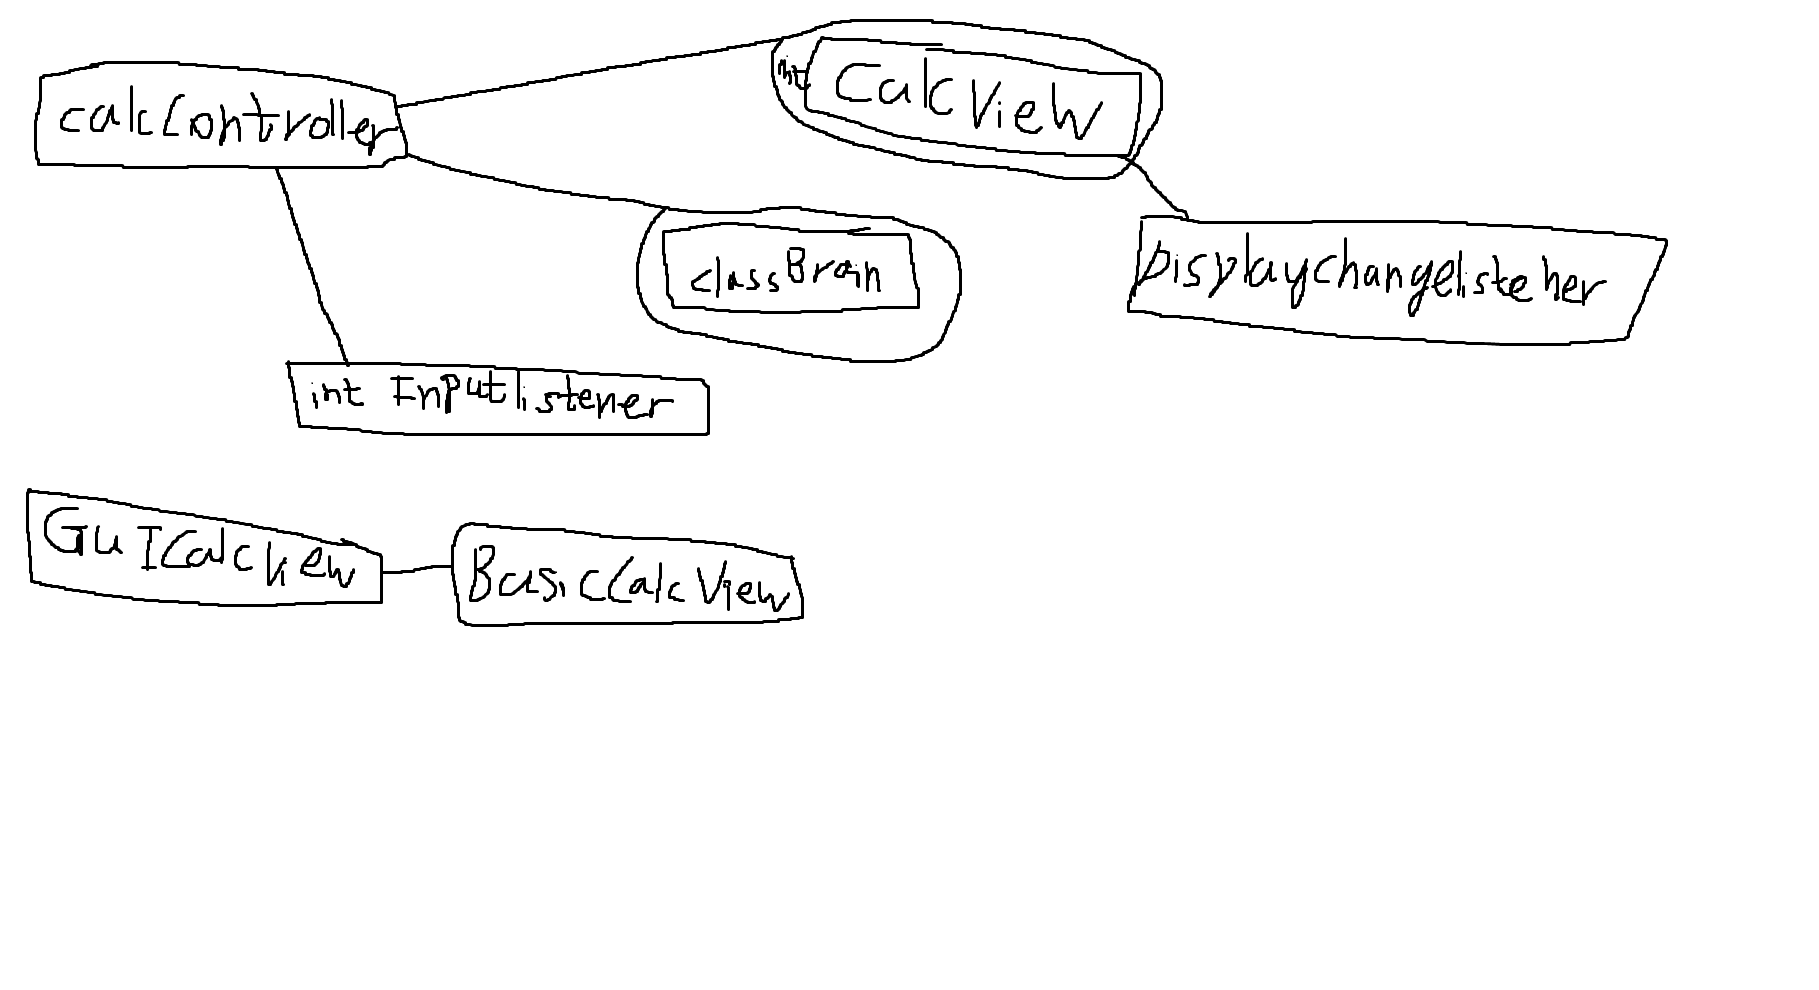 calcController
int CalcView
class Brain
Displaychangelistener
int Inputlistener
GuICalcView
BasicCalcView